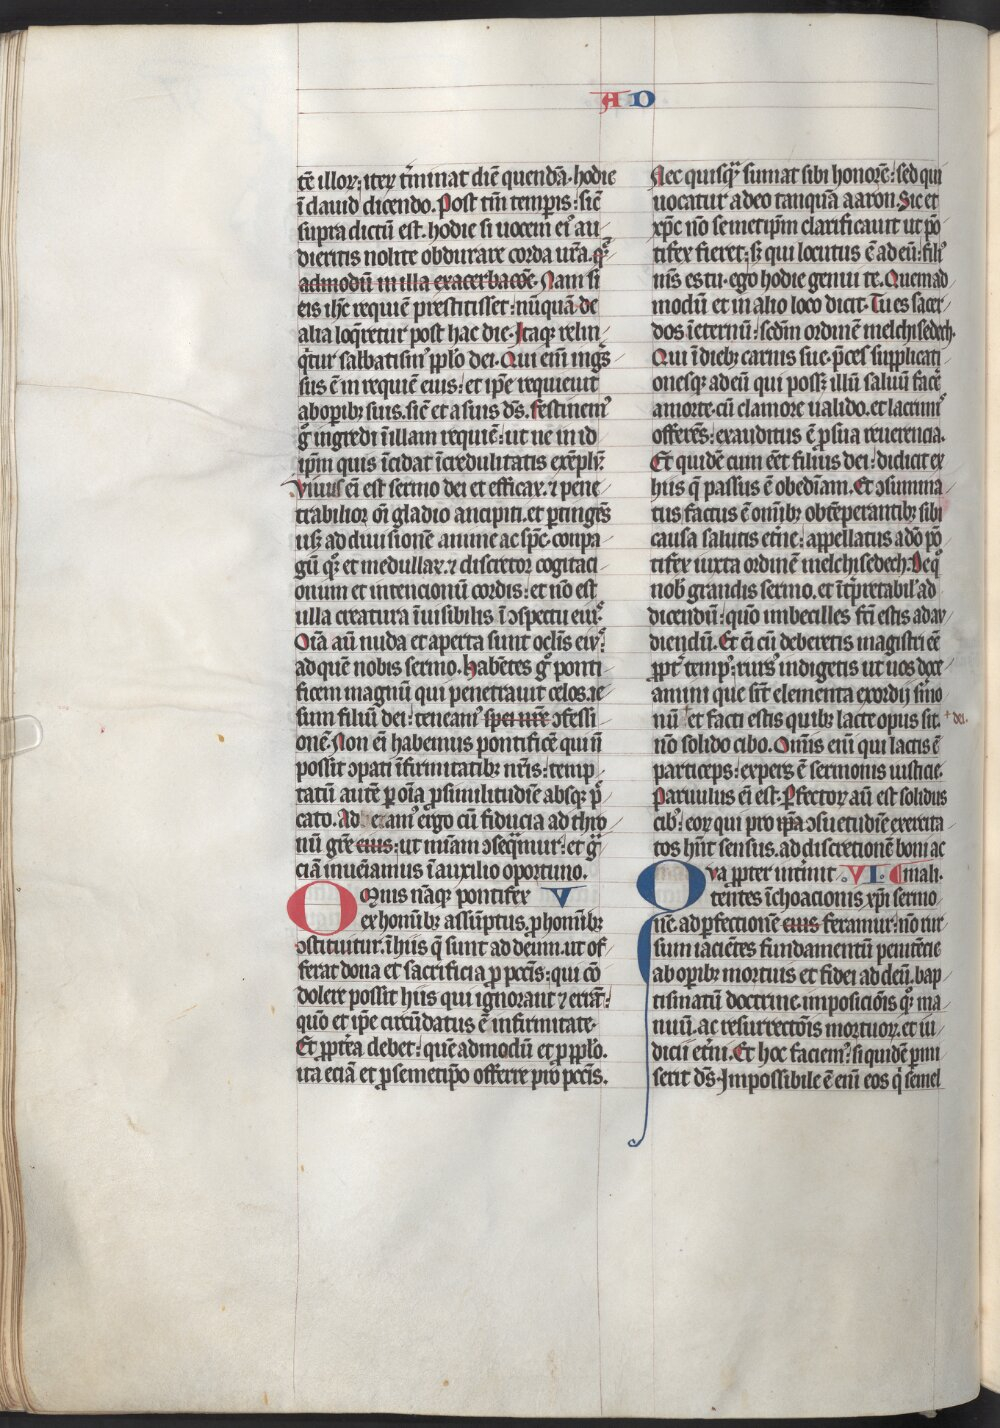 A D
tē illoꝝ: iteꝝ t̄minat diē quendā. hodie
ī dauid dicendo. Post tm̄ temp̄is: sic̄
supra dictū est. hodie si uocem ei᷒ au
dieritis nolite obdurare corda ur̄a. q̄
admodū in illa exacerbacōe. Nam si
eis ih̄c requiē prestitisset: nūquā de
alia loq̄retur post hac die. Itaqꝫ relin
q̄tur sabbatism᷒ ppl̓o dei. Qui eni̅ ingͥs
sus ē in requiē eius: et ip̄e requieuit
ab oꝑibꝫ suis. sic̄ et a suis dˢ. festinem᷒
gͦ ingredi ī illam requiē: ut ne in id
ip̄m quis īcidat īcredulitatis exēplū.
Viuus ei̅ est sermo dei et efficax. ⁊ pene
trabilior oī gladio ancipiti. et ꝑtingēs
usqꝫ ad diuisionē anime ac sp̄c. conpa
gū qͦꝫ et medullaꝝ. ⁊ discretor cogitaci
onum et intencionū cordis: et nō est
ulla creatura īuisibilis ī ɔspectu eiu᷒.
Oīa aū nuda et aperta sunt oclīs ei᷒:
ad quē nobis sermo. habētes gͦ ponti
ficem magnū qui penetrauit celos. ie
sum filiū dei: teneam᷒ spei nr̄e ɔfessi
onē. Non ei̅ habemus pontificē qui n̄
possit ɔpati īfirmitatibꝫ nr̄is: temp
tatū autē ꝑ oīa ꝓ similitudīe absqꝫ p̄
cato. Adheram᷒ ergo cū fiducia ad thro
nū gr̄e eius: ut mīam ɔseq̄mur: et gr̄
ciā inueīamus ī auxilio oportuno.
Omnis nāqꝫ pontifex V
ex homībꝫ assūptus. ꝓ homībꝫ
ɔstituitur. ī hiis q̄ sunt ad deum. ut of
ferat dona et sacrificia ꝓ pctīs: qui cō
dolere possit hiis qui ignorant ⁊ errāt:
quō et ip̄e circūdatus ē infirmitate.
Et ꝓpt̄ea debet: quē admodū et ꝓ ppl̓o.
ita eciā et ꝓ semetip̄o offerre pro pctīs.
Nec quisqᷓ sumat sibi honorē: sed qui
uocatur a deo tanquā aaron. Sic et
xp̄c nō semetip̄m clarificauit ut pō
tifex fieret: sꝫ qui locutus ē ad eū: fili᷒
m̄s es tu. ego hodie genui te. Quemad
modū et in alio loco dicit. Tu es sacer
dos ī eternū: scdm̄ ordinē melchisedech.
Qui ī diebꝫ carnis sue. p̄ces supplicati
onesqꝫ ad eū qui possꝫ illū saluū facē
a morte. cū clamore ualido. et lacrim᷒
offerēs: exauditus ē ꝓ sua reuerencia.
Et quidē cum eēt filius dei: didicit ex
hiis q̄ passus ē obedīam. Et ɔsumma
tus factus ē om̄ibꝫ obtēperantibꝫ sibi
causa salutis etn̄e: appellatus a dō pō
tifex iuxta ordinē melchisedech. De qͦ
nob̄ grandis sermo. et īt̄pretabil᷒ ad
dicendū: quō imbecilles fc̄i estis ad au
diendū. Et ei̅ cū deberetis magistri eē
ꝓpt̄ temp᷒: rurs᷒ indigetis ut uos doce
amini que sīt elementa exordij s̄mo
nū + et facti estis quibꝫ lacte opus sit. + dei.
nō solido cibo. Omīs eni̅ qui lactis ē
particeps: expers ē sermonis iusticie.
Paruulus ei̅ est. Ꝑfectoꝝ aū est solidus
cib᷒: eoꝝ qui pro ip̄a ɔsuetudīe exercita
tos hn̄t sensus. ad discretionē boni ac
Qva ꝓpter int̄mit .VI. ¶ mali.
tentes īchoacionis xp̄i sermo
nē. ad ꝑfectionē eius feramur: nō rur
sum iaciētes fundamentū penitēcie
ab oꝑibꝫ mortuis et fidei ad deū. bap
tismatū doctrine. imposiciōis qͦꝫ ma
nuū. ac resurrectōis mortuoꝝ. et iu
dicii et̄ni. Et hoc faciem᷒: si quidē ꝑmi
serit dˢ. Impossibile ē eni̅ eos qͥ semel